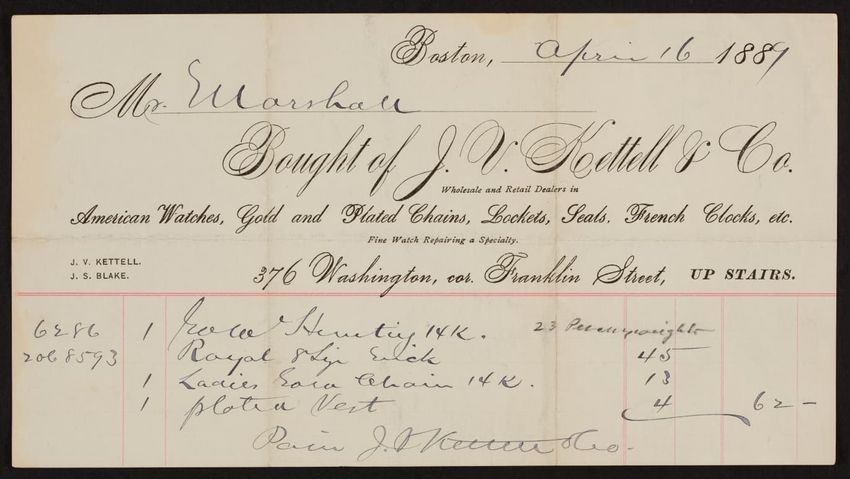 Boston, April 16 1889
Mr. E Marshall
Bought of J. V. Kettell & Co.
Wholesale and Retail Dealers in
American Watches, Gold and Plated Chains, Lockets, Seals, French Clocks, etc.
Fine Watch Repairing a Specialty.
J. V. KETTELL.
J. S. BLAKE.
376 Washington, cor. Franklin Street, UP STAIRS.
6286 1 Gold Hunting 14K. 23 Pennyweights
2068593 Royal 45
1 Ladies Gold Chain 14K. 13
1 plated Vest 4 62 —
Paid J. V Kettell & Co.